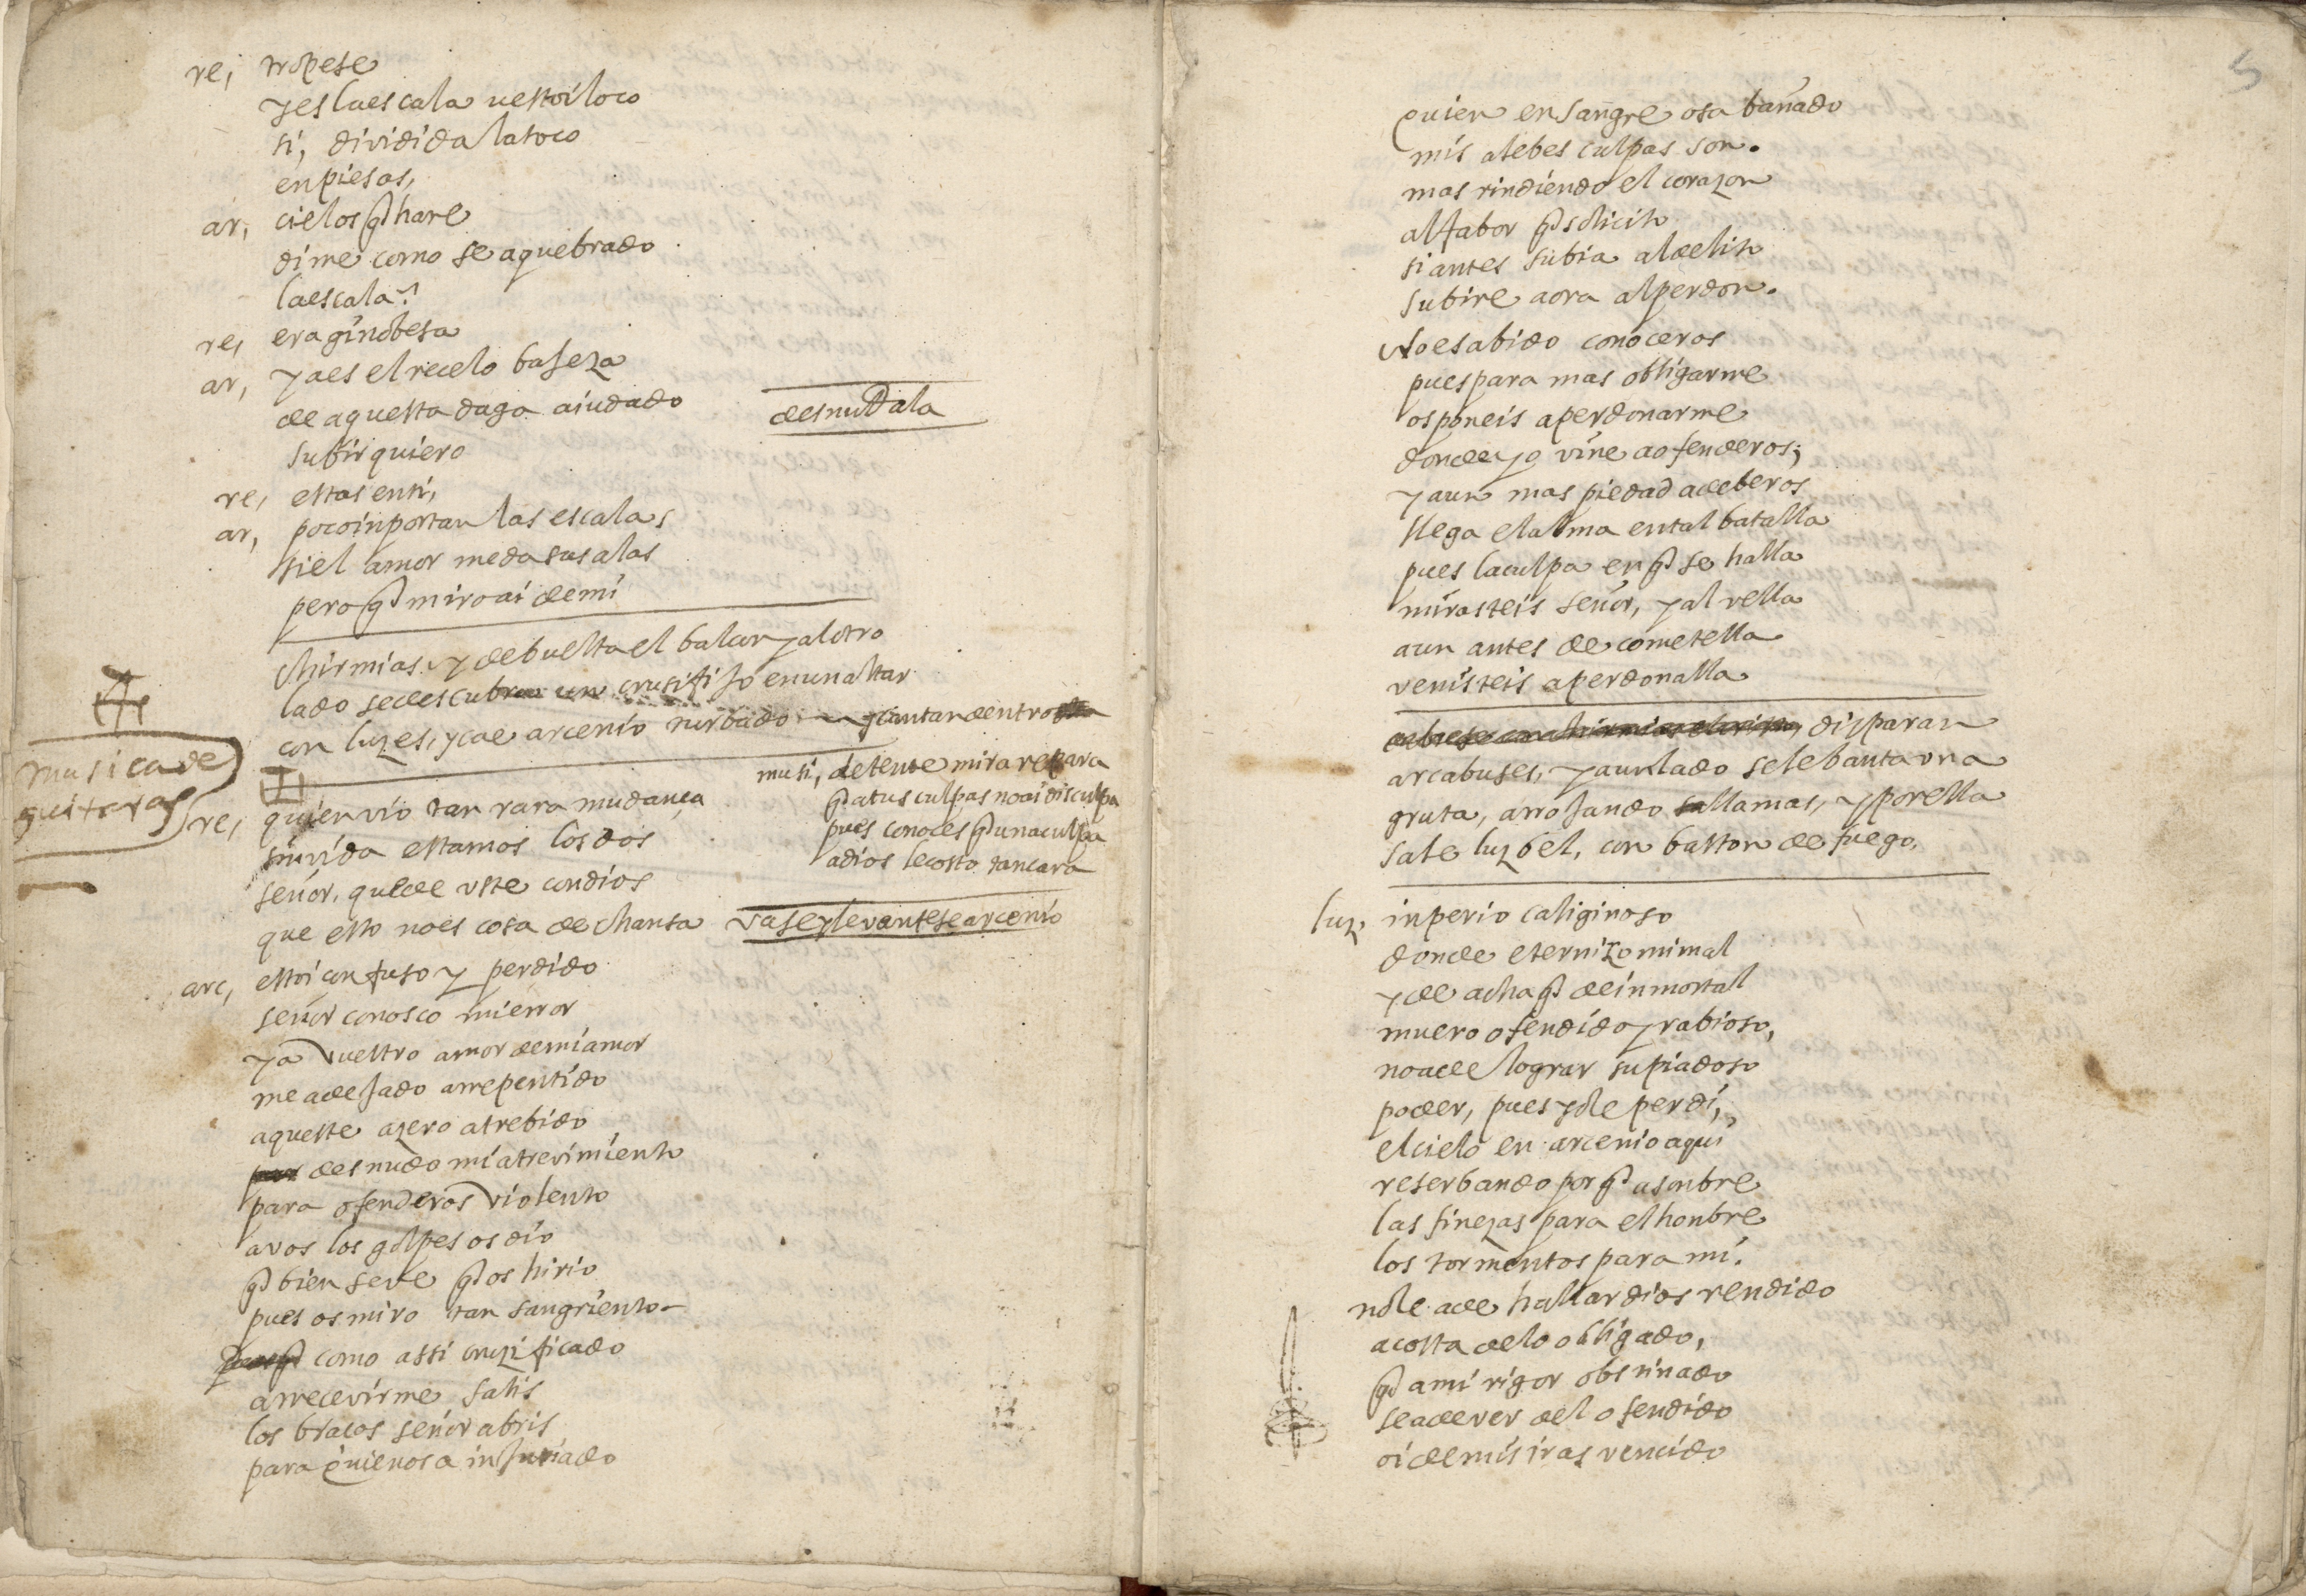 re, tropese
y es la escala u estoi loco
si, dividida la toco
en piesas,
ar, cielos q̃ hare
dime como se a quebrado
la escala?
re, era ginobesa
ar, ya es el recelo bajeza
de aquesta daga aiudado
desnudala
subir quiero
re, estas en ti,
ar, poco inportan las escalas
si el amor me da sus alas
pero q̃ miro ai de mi
chirmias y de buelta el balcon y al otro
lado se descubra un crusifijo en un altar
con luzes, y cae arcenio turbado y cantan dentro
musica de
guitaras
musi, detente mira repara
q̃ a tus culpas no ai disculpa
pues conoces q̃ una culpa
a dios le costo tan cara
re, quien vio tan rara mudança
sin vida estamos los dos
señor, quede uste con dios
que esto no es cosa de chansa
vase y levantese arcenio
arc, estoi confuso y perdido
señor conosco mi error
ya vuestro amor de mi amor
me a dejado arrepentido
aqueste azero atrebido
desnudo mi atrevimiento
para ofenderos violento
a vos los golpes os dio
q̃ bien se ve q̃ os hirio
pues os miro tan sangriento
como assi cruzificado
a rrecevirme salis
los braços señor abris
para quien os a injuriado
5
quien en sangre os a bañado
mis alebes culpas son.
mas rindiendo el corazon
al fabor q̃ solicito
si antes subia al delito
subire aora al perdon.
No e sabido conoceros
pues para mas obligarme
os poneis a perdonarme
donde yo vine a ofenderos;
y aun mas piedad a deberos
llega el alma en tal batalla
pues la culpa en q̃ se halla
mirasteis señor, y al vella
aun antes de cometella
venisteis a perdonalla
disparan
arcabuses, y a un lado se lebanta una
gruta, arrojando llamas, y por ella
sale luzbel, con baston de fuego.
luz, inperio caliginoso
donde eternizo mi mal
y de achaq̃ de inmortal
muero ofendido y rabioso,
no a de lograr su piadoso
poder, pues yo le perdi,
el cielo en arcenio aqui
reserbando por q̃ asonbre
las finezas para el honbre
los tormentos para mi.
no le a de hallar dios rendido
a costa de lo obligado,
q̃ a mi rigor obstinado
se a de ver del ofendido
oi de mis iras vencido